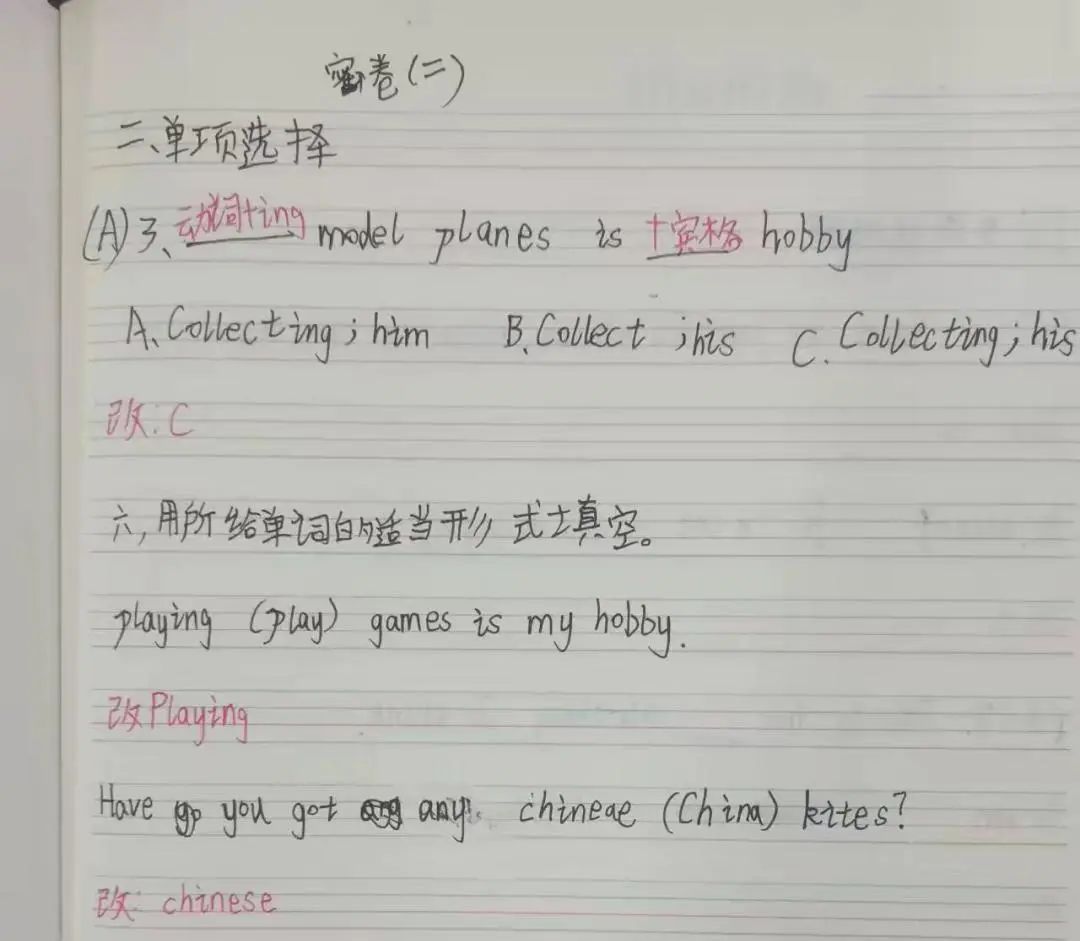 密卷(二)
二、单项选择
(A)3、动词+ing model planes is 十宾格 hobby
A. Collecting; him B. Collect; his C. Collecting; his
改: C
六, 用所给单词的适当形式填空。
playing (play) games is my hobby.
改 Playing
Have you got any chineae (China) kites?
改: chinese